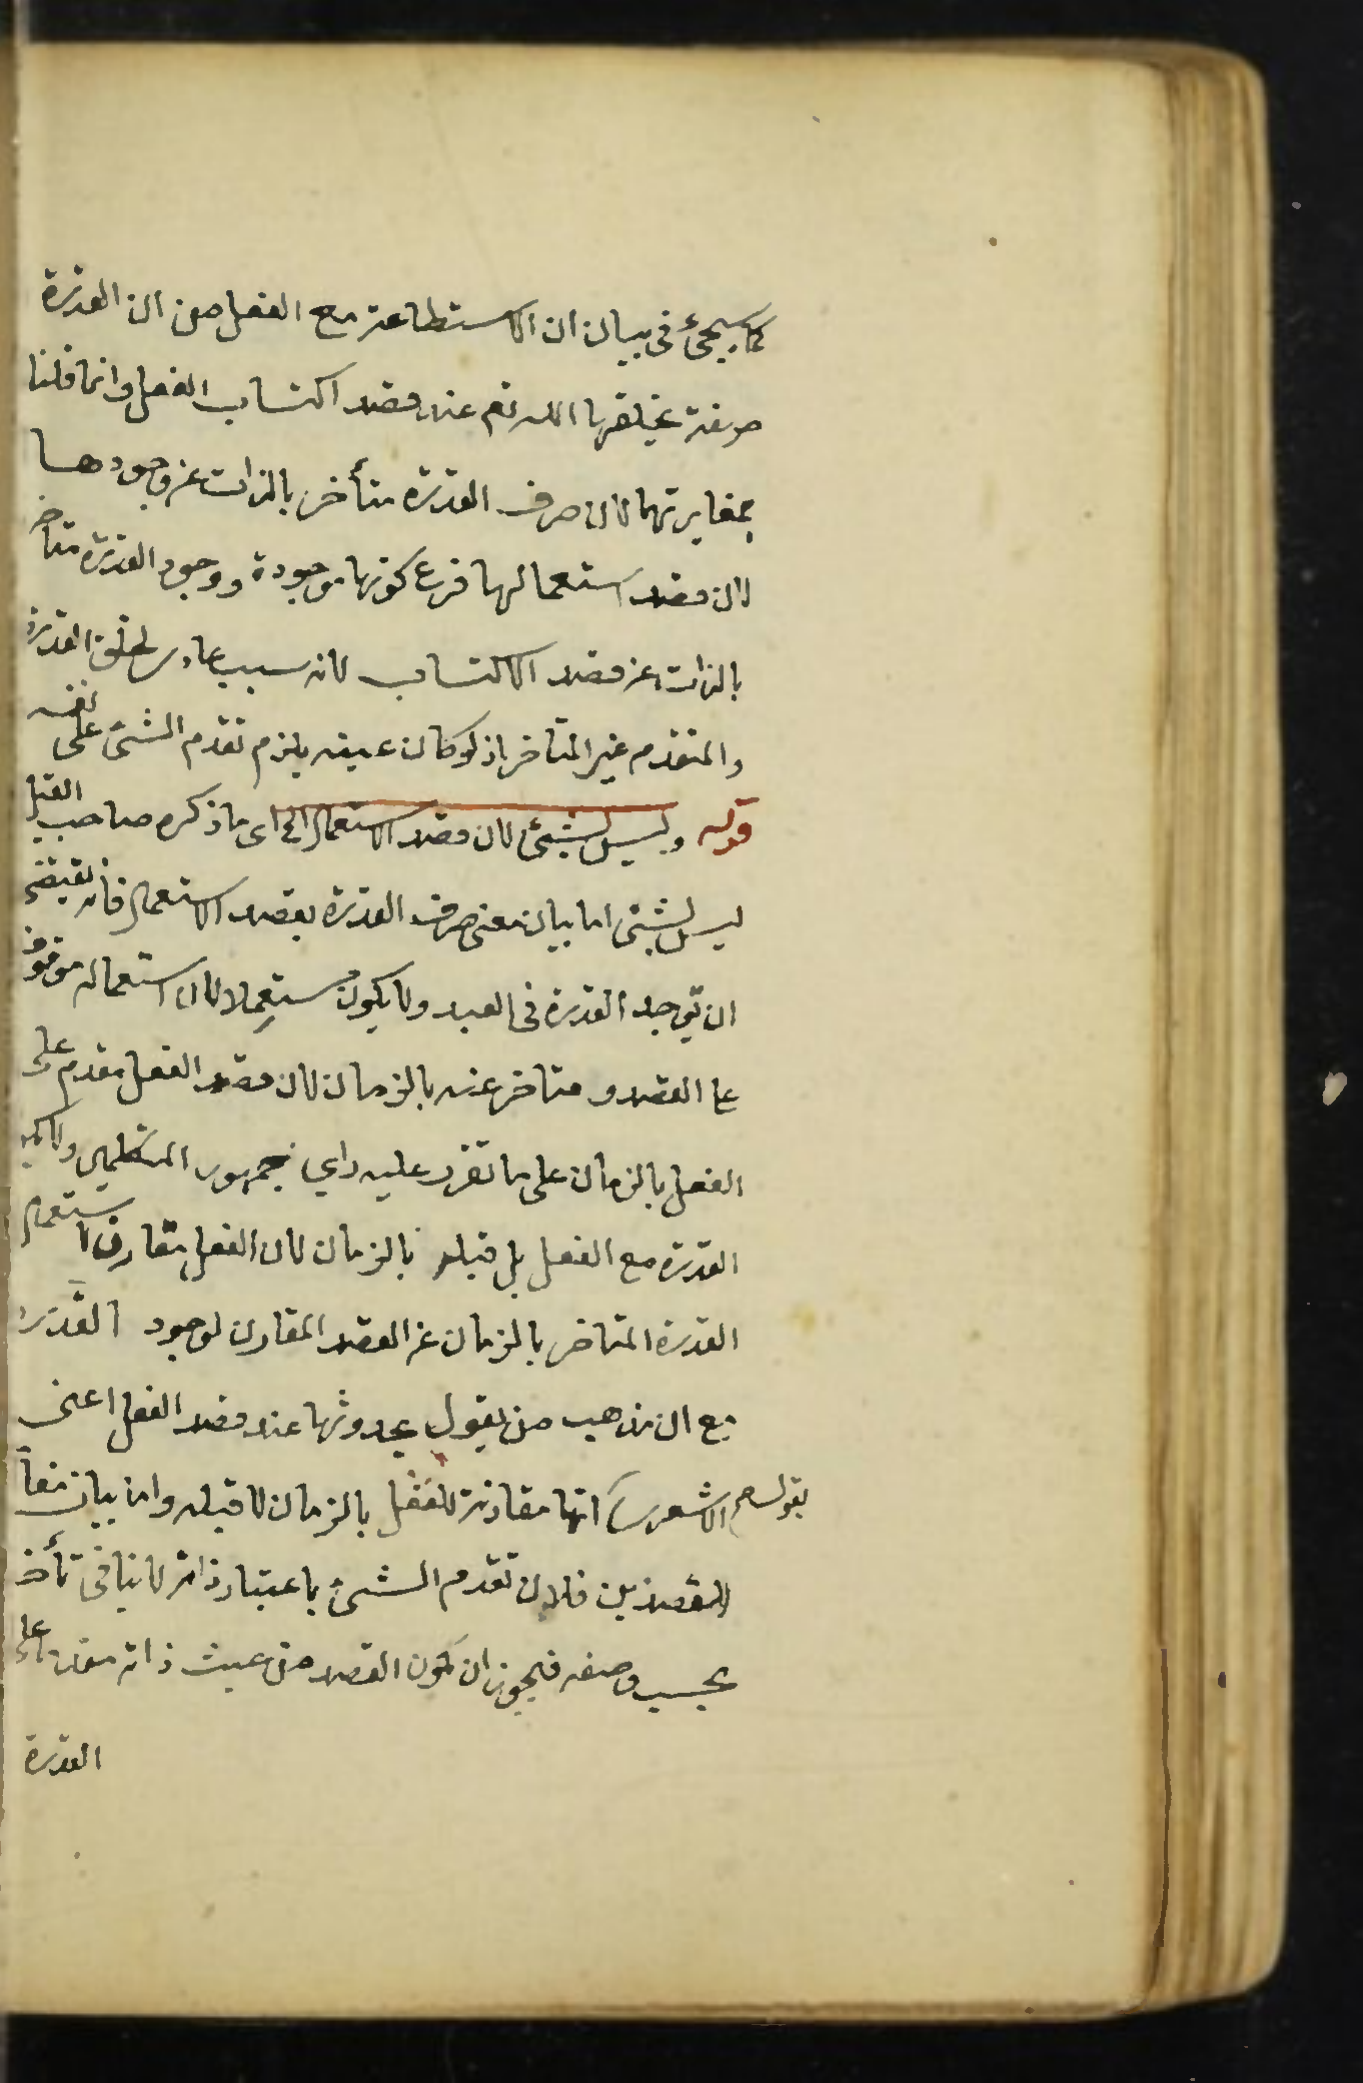 كما سيجئ في بيان ان الاستطاعة مع الفعل من ان القدرة
صفة يخلقها الله تعم عند قصد اكتساب الفعل وانما قلنا
بمغايرتهما لان صرف القدرة متأخر بالذات عن وجودها
لان قصد استعمالها فرع كونها موجودة ووجود القدرة متأخر
بالذات عن قصد الاكتساب لانه سبب عادي لخلق القدرة
والمتقدم غير المتأخر اذ لو كان عينه يلزم تقدم الشئ على نفسه
قوله وليس بشئ لان قصد الاستعمال الخ اى ما ذكره صاحب القيل
ليس بشئ اما بيان معنى صرف القدرة بقصد الاستعمال فانه يقتضى
ان توجد القدرة في العبد ولا يكون مستعملا لان استعماله موقوف
على القصد و متاخر عنه بالزمان لان قصد الفعل مقدم على
الفعل بالزمان على ما تقرر عليه راي جمهور المتكلمين ولا يكون
القدرة مع الفعل بل قبله بالزمان لان الفعل مقارن لاستعمال
القدرة المتاخر بالزمان عن القصد المقارن لوجود القدرة
مع ان مذهب من يقول بحدوثها عند قصد الفعل اعنى
الاشعري انها مقارنة للفعل بالزمان لا قبله واما بيان مغا
للقصدين فلان تقدم الشئ باعتبار ذاته لا ينافي تأخر
بحسب وصفه فيجوز ان يكون القصد من حيث ذاته مقدما على
القدرة